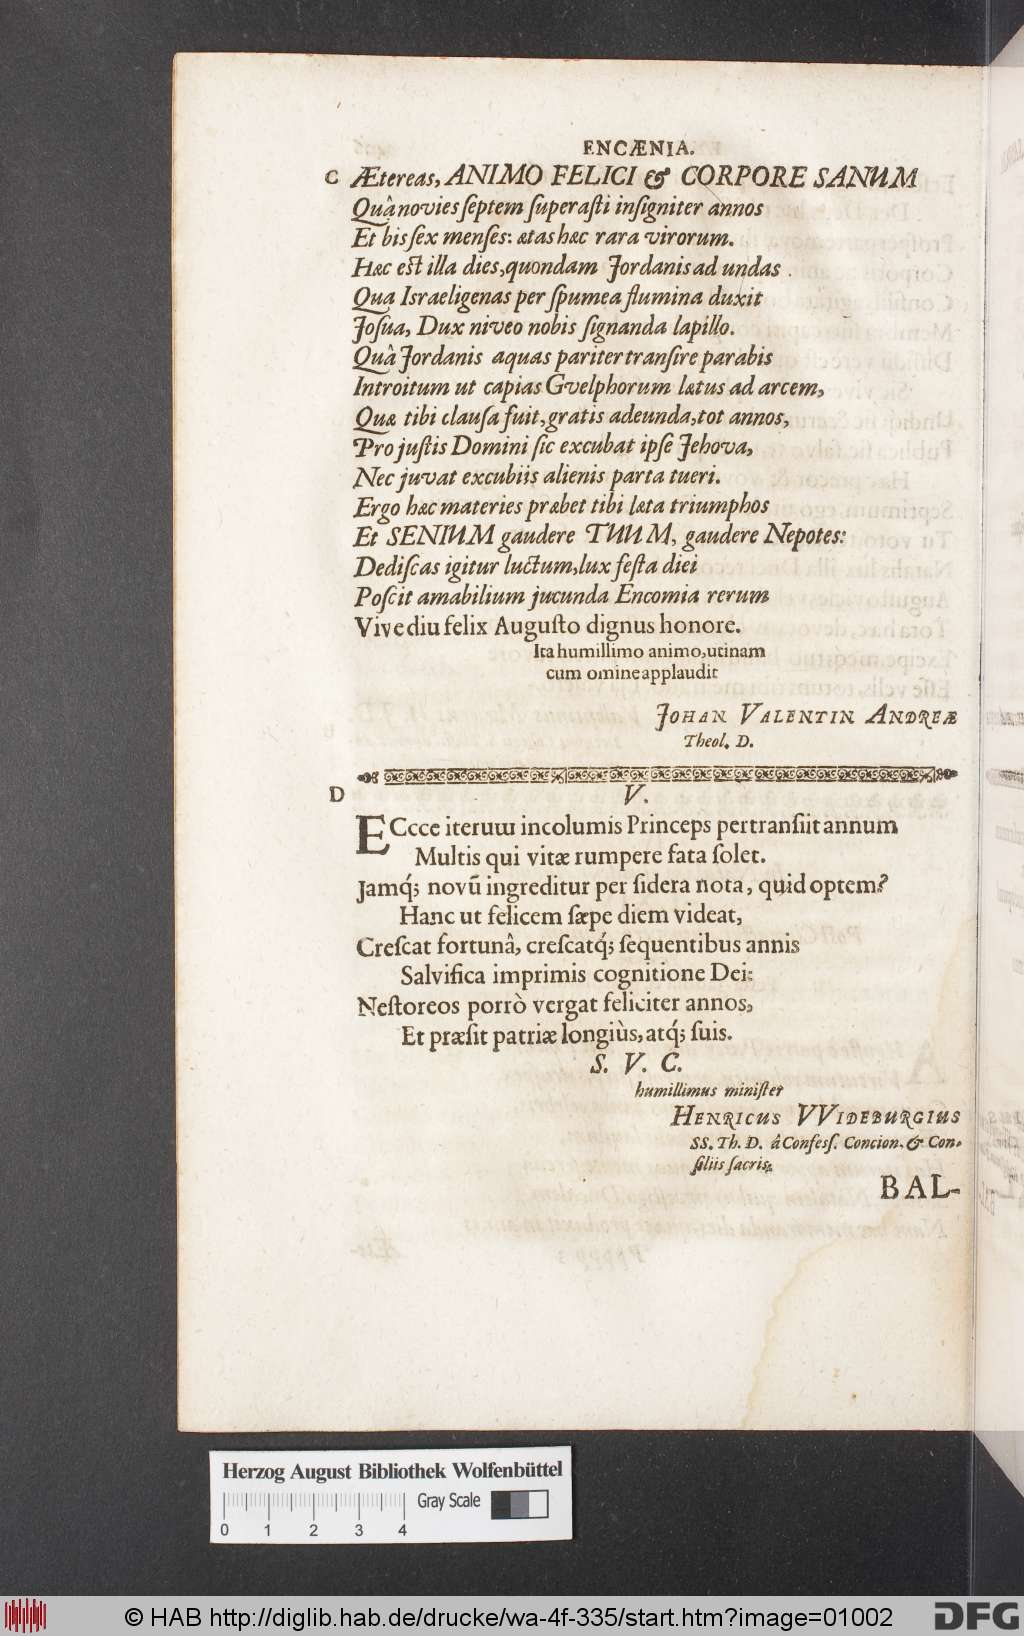 ENCÆNIA.
C Ætereas, ANIMO FELICI & CORPORE SANUM
Quâ novies ſeptem ſuperaſti inſigniter annos
Et bis ſex menſes: ætas hæc rara virorum.
Hæc eſt illa dies, quondam Jordanis ad undas
Qua Israeligenas per ſpumea flumina duxit
Joſua, Dux niveo nobis ſignanda lapillo.
Quâ Jordanis aquas pariter tranſire parabis
Introitum ut capias Gvelphorum lætus ad arcem,
Quæ tibi clauſa fuit, gratis adeunda, tot annos,
Pro juſtis Domini ſic excubat ipſe Jehova,
Nec juvat excubiis alienis parta tueri.
Ergo hæc materies præbet tibi læta triumphos
Et SENIUM gaudere TUUM, gaudere Nepotes:
Dediſcas igitur luctum, lux feſta diei
Poſcit amabilium jucunda Encomia rerum
Vive diu felix Auguſto dignus honore.
Ita humillimo animo, utinam
cum omine applaudit
JOHAN VALENTIN ANDREÆ
Theol. D.
D V.
ECcce iterum incolumis Princeps pertranſiit annum
Multis qui vitæ rumpere fata ſolet.
Jamq́; novũ ingreditur per ſidera nota, quid optem?
Hanc ut felicem ſæpe diem videat,
Creſcat fortunâ, creſcatq́; ſequentibus annis
Salvifica imprimis cognitione Dei:
Neſtoreos porrò vergat feliciter annos,
Et præſit patriæ longiùs, atq́; ſuis.
S. V. C.
humillimus miniſter
HENRICUS VVIDEBURGIUS
SS. Th. D. â Confeſſ. Concion. & Con-
ſiliis ſacris.
BAL-
Herzog August Bibliothek Wolfenbüttel
Gray Scale
0 1 2 3 4
© HAB http://diglib.hab.de/drucke/wa-4f-335/start.htm?image=01002
DFG